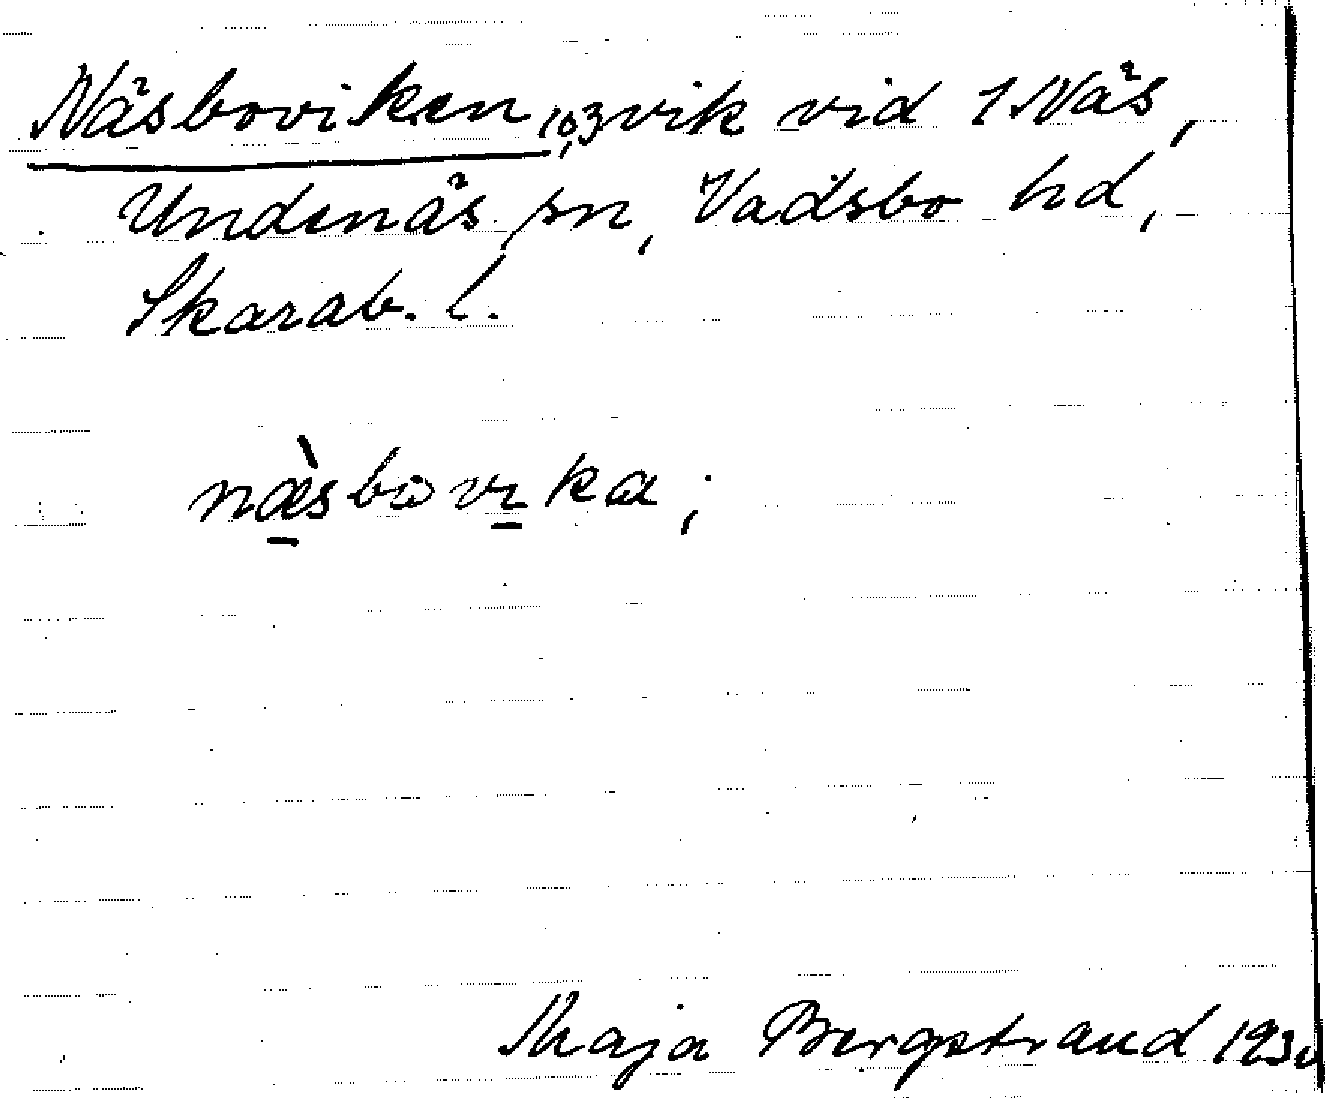 Näsboviken, 103, vik vid 1 Näs,
Undenäs sn, Vadsbo hd,
Skarab. l.
næ̀sbovika;
Maja Bergstrand